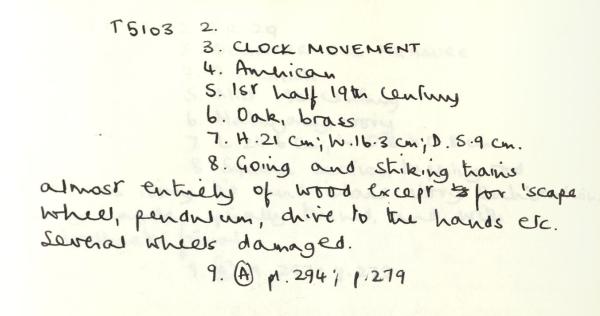 T5103 2.
3. CLOCK MOVEMENT
4. American
5. 1st half 19th century
6. Oak, brass
7. H.21 cm; W.16.3 cm; D.5.9 cm.
8. Going and striking trains
almost entirely of wood except for 'scape
wheel, pendulum, drive to the hands etc.
Several wheels damaged.
9. Ⓐ pl.294; p.279